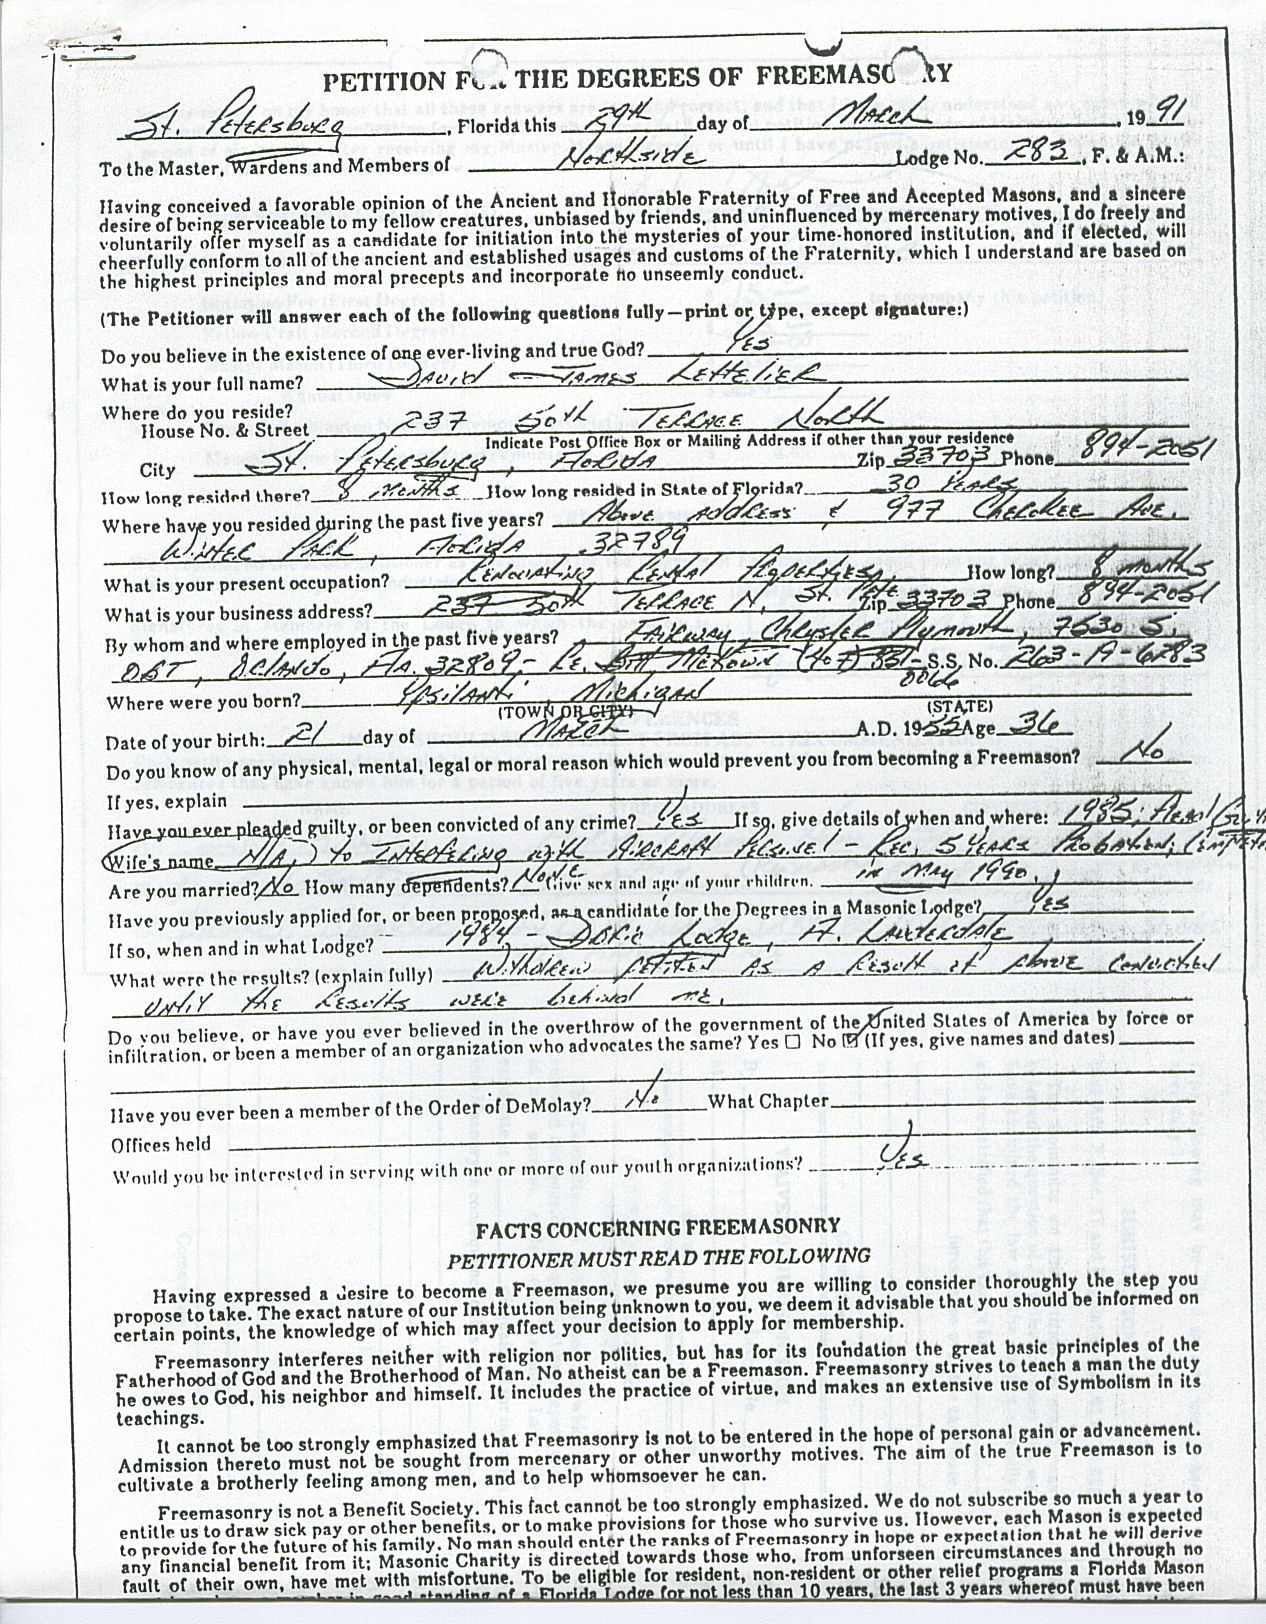 PETITION FOR THE DEGREES OF FREEMASONRY
St. Petersburg, Florida this 29th day of March, 1991
To the Master, Wardens and Members of Northside Lodge No. 283, F. & A.M.:
Having conceived a favorable opinion of the Ancient and Honorable Fraternity of Free and Accepted Masons, and a sincere
desire of being serviceable to my fellow creatures, unbiased by friends, and uninfluenced by mercenary motives, I do freely and
voluntarily offer myself as a candidate for initiation into the mysteries of your time-honored institution, and if elected, will
cheerfully conform to all of the ancient and established usages and customs of the Fraternity, which I understand are based on
the highest principles and moral precepts and incorporate no unseemly conduct.
(The Petitioner will answer each of the following questions fully—print or type, except signature:)
Do you believe in the existence of one ever-living and true God? Yes
What is your full name? David James Lettelier
Where do you reside?
House No. & Street 237 50th Terrace North
Indicate Post Office Box or Mailing Address if other than your residence
City St. Petersburg, Florida Zip 33703 Phone 894-2051
How long resided there? 8 months How long resided in State of Florida? 30 Years
Where have you resided during the past five years? Above Address & 977 Cherokee Ave.
Winter Park, Florida 32789
What is your present occupation? Renovating Rental Properties, How long? 8 months
What is your business address? 237 50th Terrace N. St. Pete Zip 33703 Phone 894-2051
By whom and where employed in the past five years? Fairway Chrysler Plymouth, 7630 S.
OBT, Orlando, Fla. 32809 - Re. Bill McKown (407) 851- S.S. No. 263-19-6283
0066
Where were you born? Ypsilanti, Michigan
(TOWN OR CITY) (STATE)
Date of your birth: 21 day of March A.D. 1955 Age 36
Do you know of any physical, mental, legal or moral reason which would prevent you from becoming a Freemason? No
If yes, explain
Have you ever pleaded guilty, or been convicted of any crime? Yes If so, give details of when and where: 1985: Plead Guilty
Wife's name N/A, to Interfering with Aircraft Personel - Rec. 5 Years Probation;
Are you married? No How many dependents? None Give sex and age of your children. in May 1990.
Have you previously applied for, or been proposed, as a candidate for the Degrees in a Masonic Lodge? Yes
If so, when and in what Lodge? 1984 Doric Lodge, Ft. Lauderdale
What were the results? (explain fully) Withdrew petition as a Result of Above Conviction
until the Results were behind me.
Do you believe, or have you ever believed in the overthrow of the government of the United States of America by force or
infiltration, or been a member of an organization who advocates the same? Yes ☐ No ☑ (If yes, give names and dates)
Have you ever been a member of the Order of DeMolay? No What Chapter
Offices held
Would you be interested in serving with one or more of our youth organizations? Yes
FACTS CONCERNING FREEMASONRY
PETITIONER MUST READ THE FOLLOWING
Having expressed a desire to become a Freemason, we presume you are willing to consider thoroughly the step you
propose to take. The exact nature of our Institution being unknown to you, we deem it advisable that you should be informed on
certain points, the knowledge of which may affect your decision to apply for membership.
Freemasonry interferes neither with religion nor politics, but has for its foundation the great basic principles of the
Fatherhood of God and the Brotherhood of Man. No atheist can be a Freemason. Freemasonry strives to teach a man the duty
he owes to God, his neighbor and himself. It includes the practice of virtue, and makes an extensive use of Symbolism in its
teachings.
It cannot be too strongly emphasized that Freemasonry is not to be entered in the hope of personal gain or advancement.
Admission thereto must not be sought from mercenary or other unworthy motives. The aim of the true Freemason is to
cultivate a brotherly feeling among men, and to help whomsoever he can.
Freemasonry is not a Benefit Society. This fact cannot be too strongly emphasized. We do not subscribe so much a year to
entitle us to draw sick pay or other benefits, or to make provisions for those who survive us. However, each Mason is expected
to provide for the future of his family. No man should enter the ranks of Freemasonry in hope or expectation that he will derive
any financial benefit from it; Masonic Charity is directed towards those who, from unforseen circumstances and through no
fault of their own, have met with misfortune. To be eligible for resident, non-resident or other relief programs a Florida Mason
standing of a Florida Lodge for not less than 10 years, the last 3 years whereof must have been